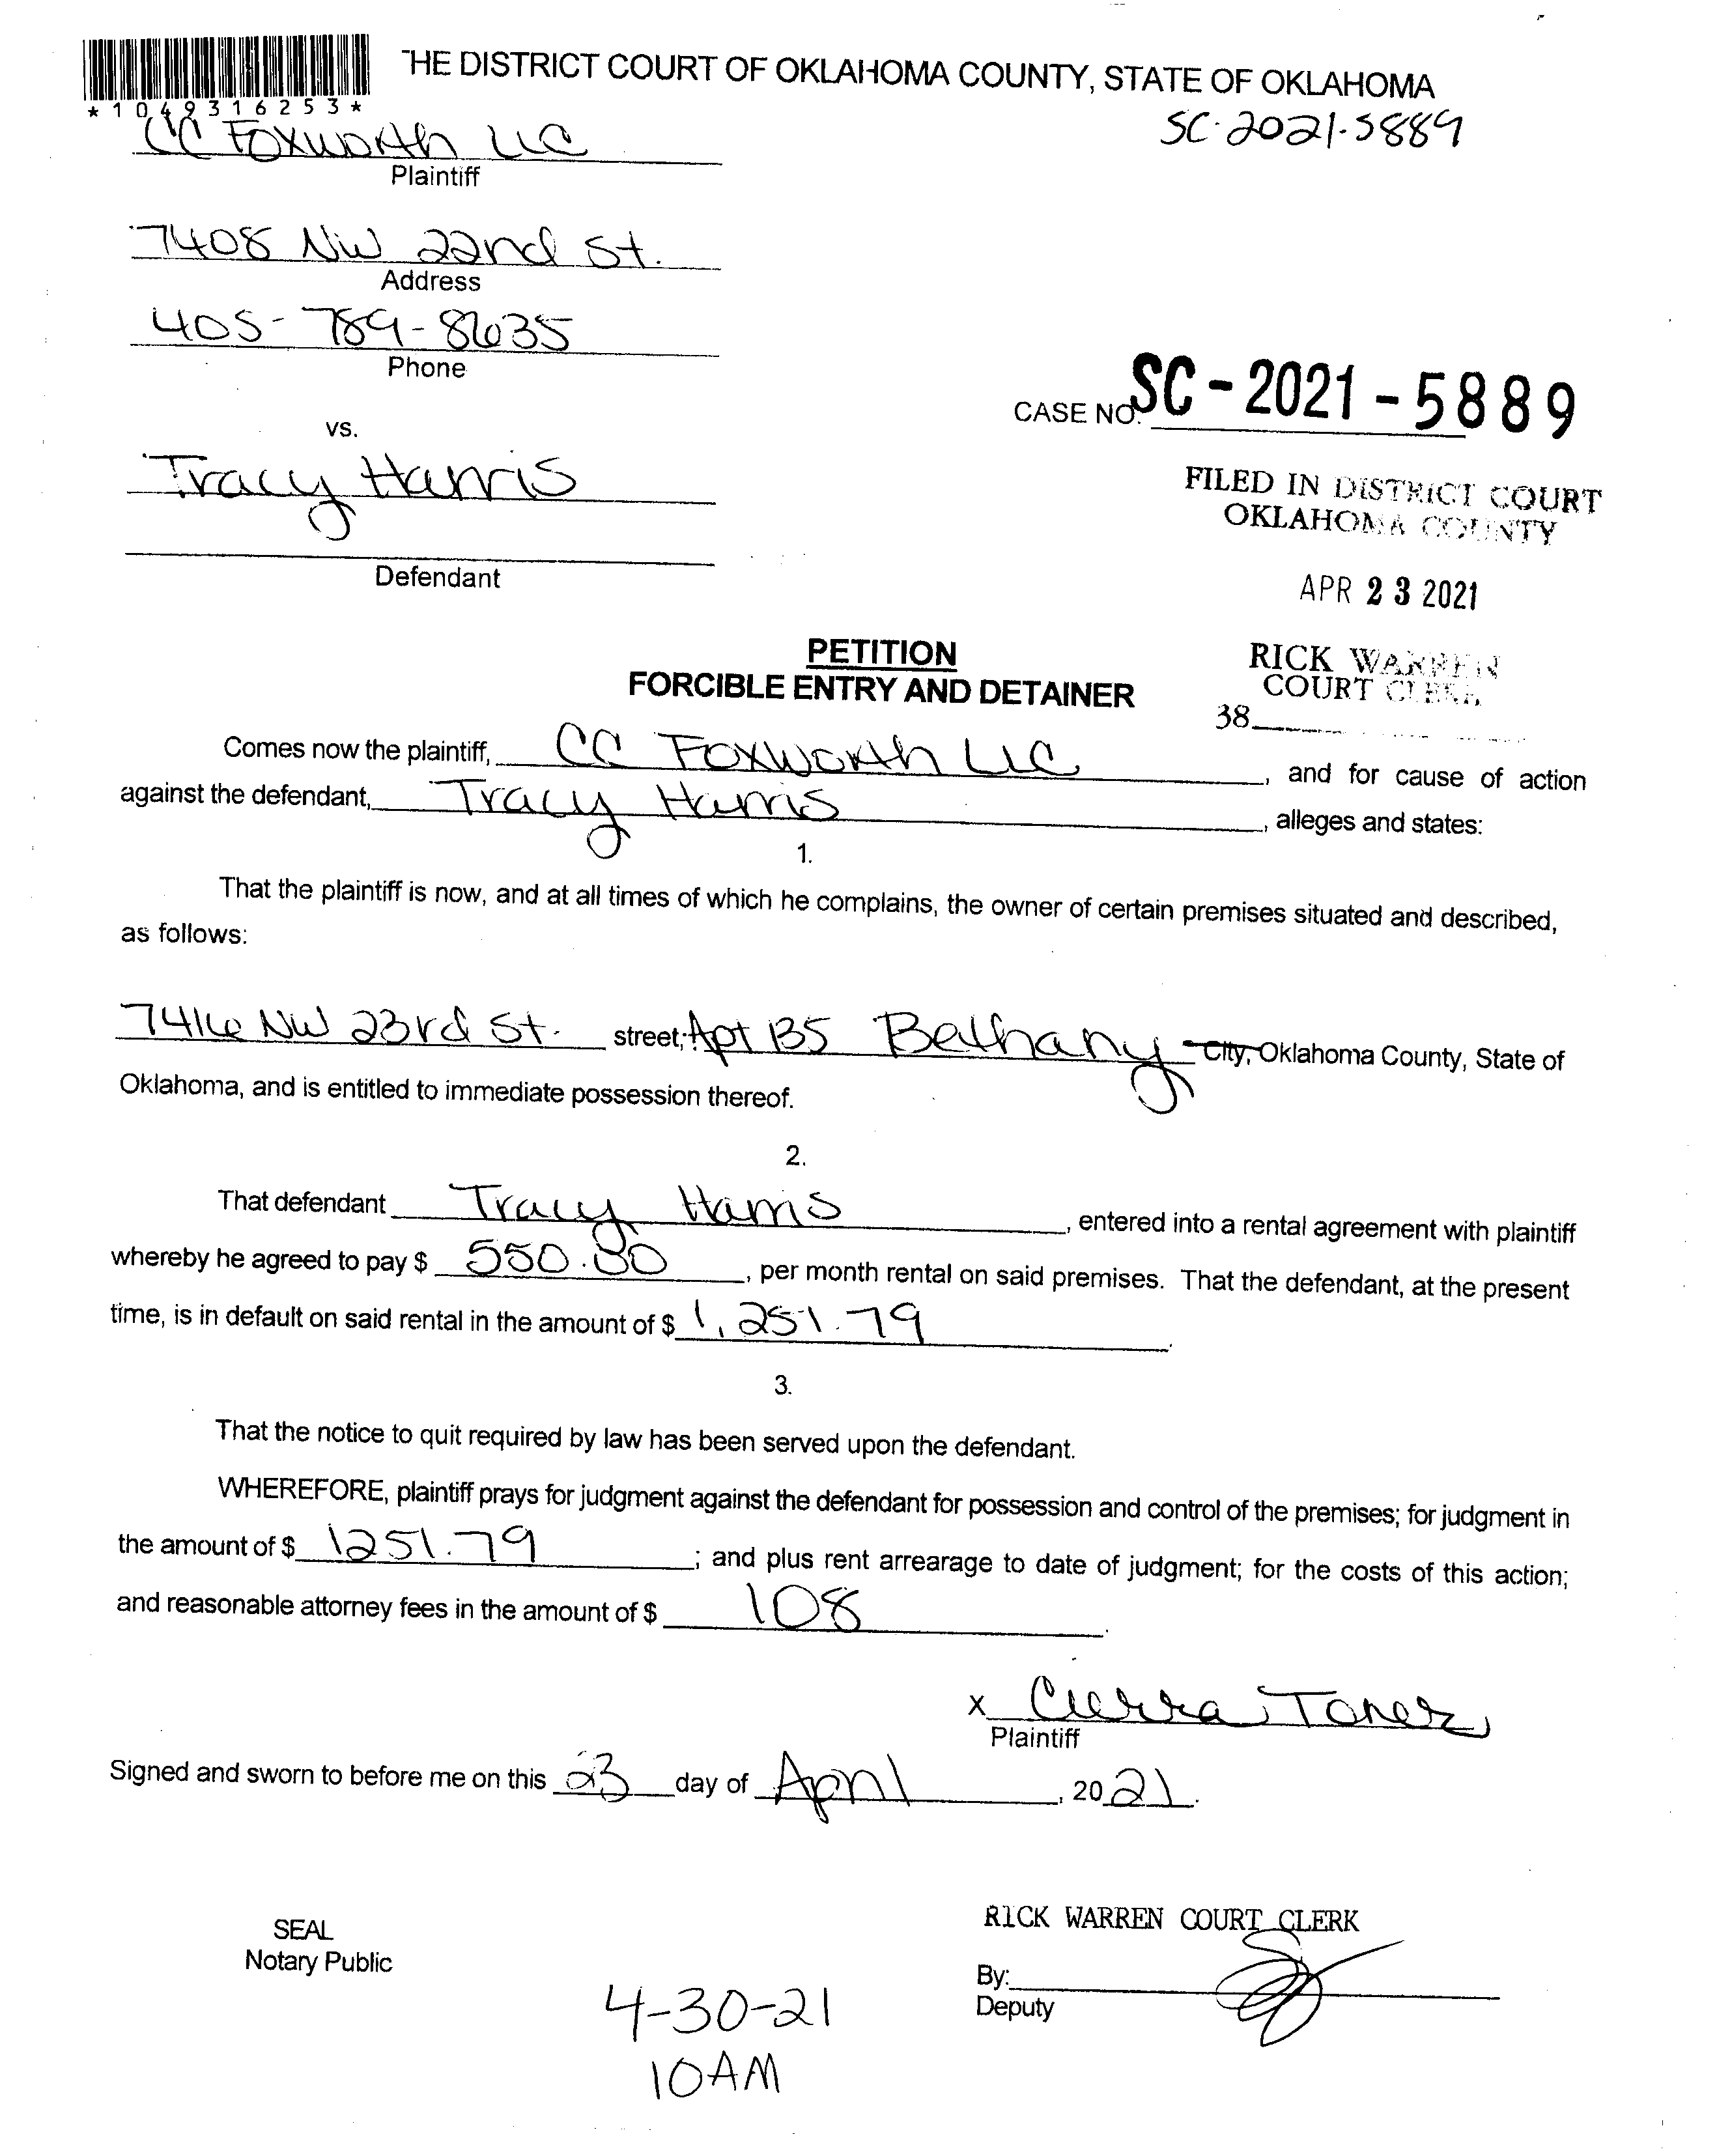 THE DISTRICT COURT OF OKLAHOMA COUNTY, STATE OF OKLAHOMA
*1049316253*
SC-2021-5889
CC Foxworth LLC
Plaintiff
7408 NW 22nd St.
Address
405-789-8635
Phone
CASE NO. SC-2021-5889
vs.
Tracy Harris
FILED IN DISTRICT COURT
OKLAHOMA COUNTY
Defendant
APR 23 2021
PETITION
FORCIBLE ENTRY AND DETAINER
RICK WARREN
COURT CLERK
38
Comes now the plaintiff, CC Foxworth LLC, and for cause of action
against the defendant, Tracy Harris, alleges and states:
1.
That the plaintiff is now, and at all times of which he complains, the owner of certain premises situated and described,
as follows:
7416 NW 23rd St. street; Apt B5 Bethany City, Oklahoma County, State of
Oklahoma, and is entitled to immediate possession thereof.
2.
That defendant Tracy Harris, entered into a rental agreement with plaintiff
whereby he agreed to pay $ 550.00, per month rental on said premises. That the defendant, at the present
time, is in default on said rental in the amount of $ 1,251.79.
3.
That the notice to quit required by law has been served upon the defendant.
WHEREFORE, plaintiff prays for judgment against the defendant for possession and control of the premises; for judgment in
the amount of $ 1251.79; and plus rent arrearage to date of judgment; for the costs of this action;
and reasonable attorney fees in the amount of $ 108.
x Cierra Toner
Plaintiff
Signed and sworn to before me on this 23 day of April, 2021.
RICK WARREN COURT CLERK
SEAL
Notary Public
By:
Deputy
4-30-21
10AM